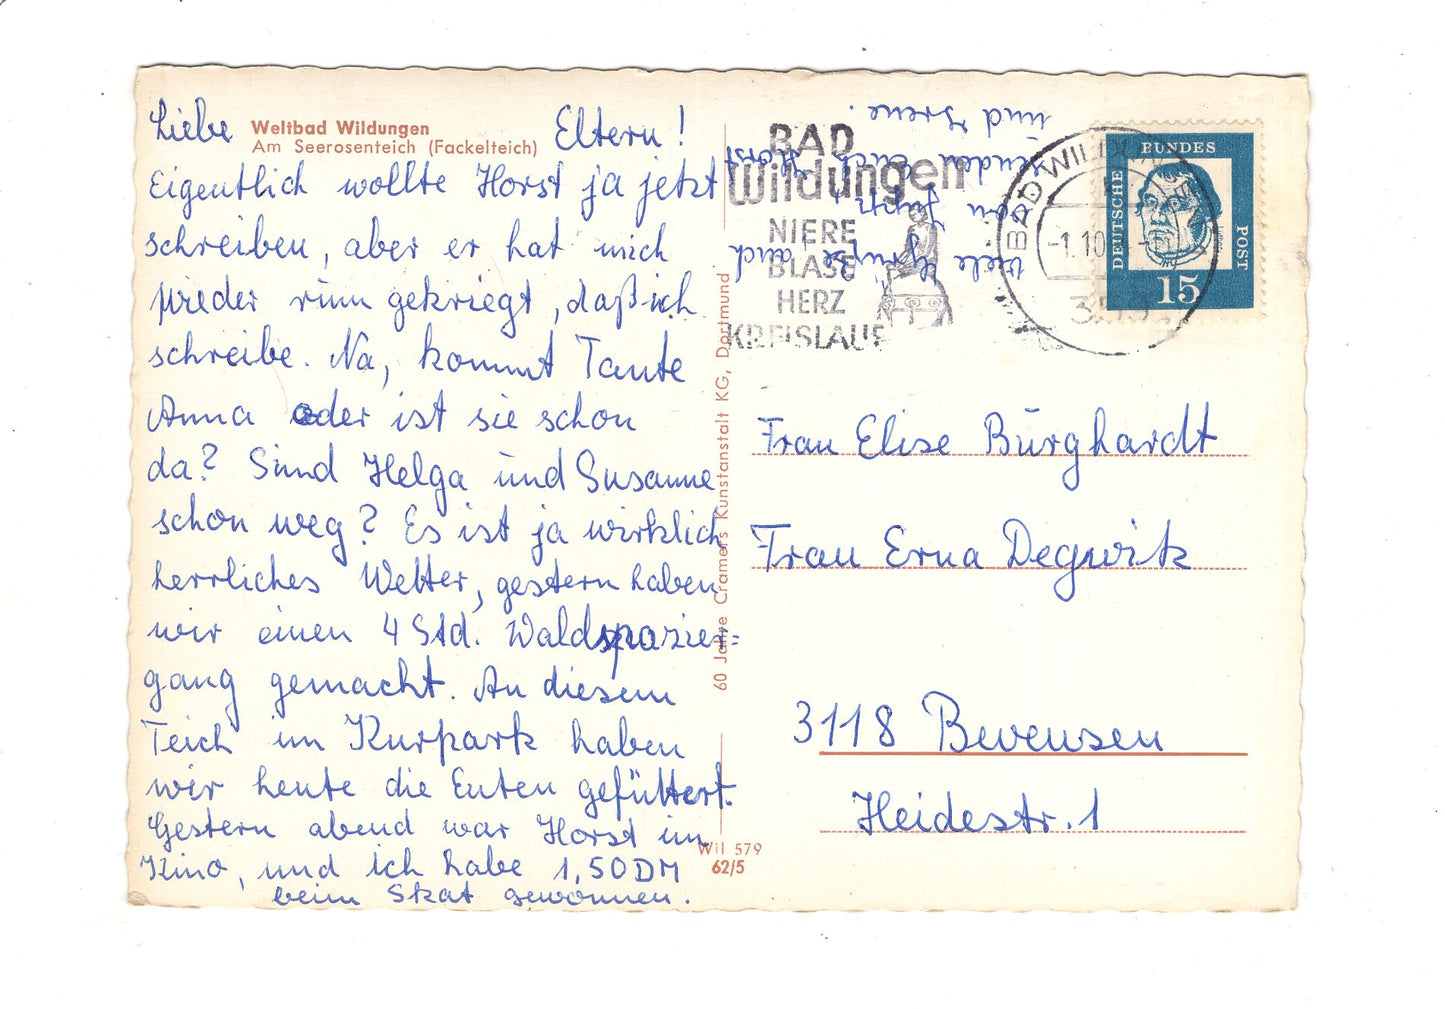 Weltbad Wildungen
Am Seerosenteich (Fackelteich)
Liebe Eltern!
Eigentlich wollte Horst ja jetzt
schreiben, aber er hat mich
wieder rum gekriegt, daß ich
schreibe. Na, kommt Tante
Anna oder ist sie schon
da? Sind Helga und Susanne
schon weg? Es ist ja wirklich
herrliches Wetter, gestern haben
wir einen 4 Std. Waldspazier=
gang gemacht. An diesem
Teich im Kurpark haben
wir heute die Enten gefüttert.
Gestern abend war Horst im
Kino, und ich habe 1,50 DM
beim Skat gewonnen.
Viele Grüße auch
von
senden Euch Horst
und Irene.
60 Jahre Cramers Kunstanstalt KG, Dortmund
Wil 579
62/5
BAD
Wildungen
NIERE
BLASE
HERZ
KREISLAUF
BAD WILDUNGEN
-1.10.
359
DEUTSCHE
BUNDES
POST
15
Frau Elise Burghardt
Frau Erna Degwitz
3118 Bevensen
Heidestr. 1